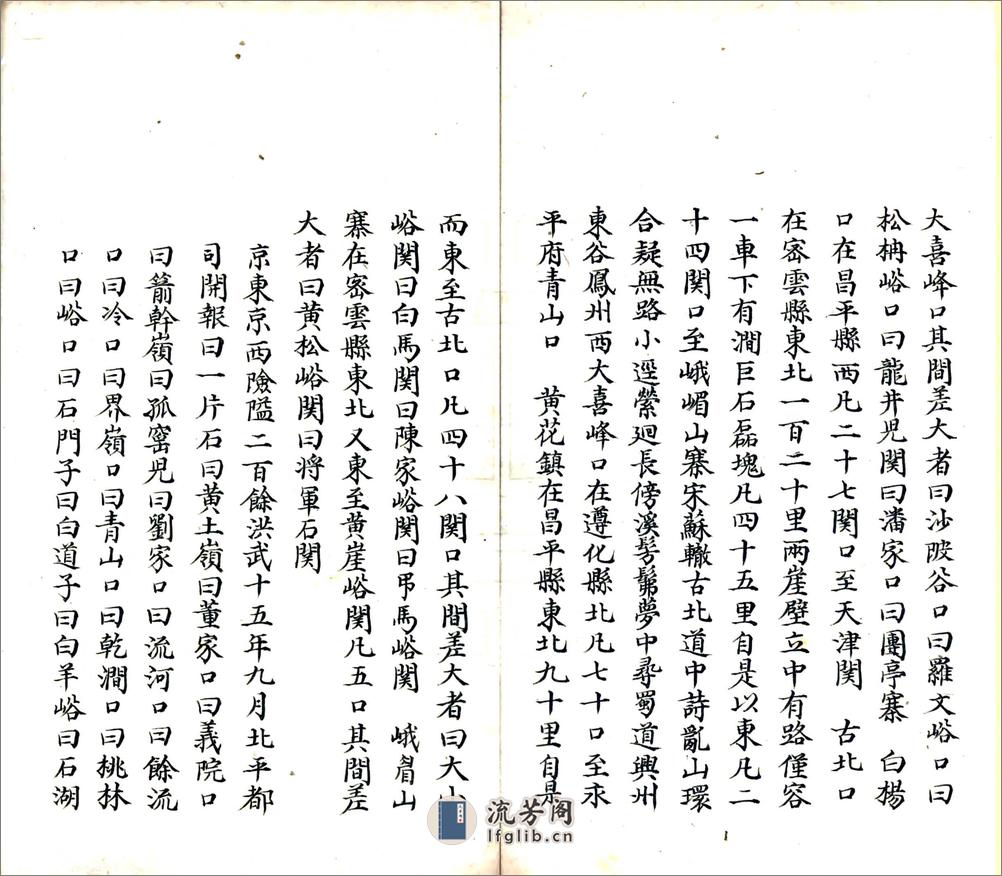 大喜峰口其間差大者曰沙陂谷口曰羅文峪口曰
松棚峪口曰龍井児関曰潘家口曰團亭寨　白楊
口在昌平縣西凡二十七関口至天津関　古北口
在密雲縣東北一百二十里兩崖壁立中有路僅容
一車下有澗巨石磊塊凡四十五里自是以東凡二
十四関口至峨嵋山寨宋蘇轍古北道中詩亂山環
合疑無路小逕縈廻長傍溪髣髴夢中尋蜀道興州
東谷鳳州西大喜峰口在遵化縣北凡七十口至永
平府青山口　黄花鎮在昌平縣東北九十里自是
而東至古北口凡四十八関口其間差大者曰大小
峪関曰白馬関曰陳家峪関曰弔馬峪関　峨眉山
寨在密雲縣東北又東至黄崖峪関凡五口其間差
大者曰黄松峪関曰将軍石関
京東京西險隘二百餘洪武十五年九月北平都
司開報曰一片石曰黄土嶺曰董家口曰義院口
曰箭幹嶺曰孤窑児曰劉家口曰流河口曰餘流
口曰冷口曰界嶺口曰青山口曰乾澗口曰桃林
口曰峪口曰石門子曰白道子曰白羊峪曰石湖
流芳阁
lfglib.cn